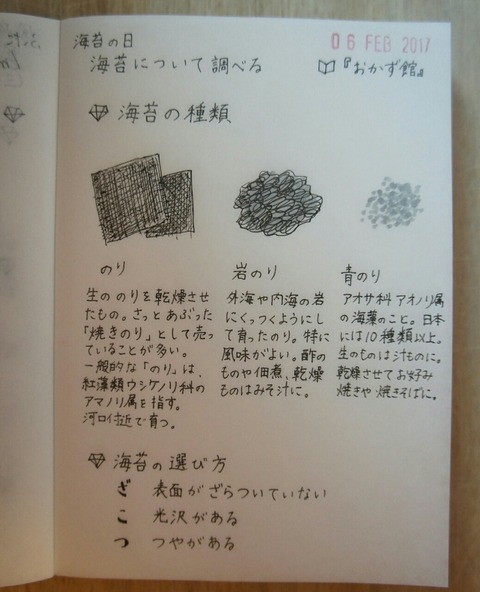 海苔の日
06 FEB 2017
海苔について調べる
『おかず館』
海苔の種類
のり
生ののりを乾燥させ
たもの。さっとあぶった
「焼きのり」として売っ
ていることが多い。
一般的な「のり」は、
紅藻類ウシケノリ科の
アマノリ属を指す。
河口付近で育つ。
岩のり
外海や内海の岩
にくっつくようにし
て育ったのり。特に
風味がよい。酢の
ものや佃煮、乾燥
ものはみそ汁に。
青のり
アオサ科アオノリ属
の海藻のこと。日本
には10種類以上。
生のものは汁ものに。
乾燥させてお好み
焼きや焼きそばに。
海苔の選び方
ざ 表面がざらついていない
こ 光沢がある
つ つやがある